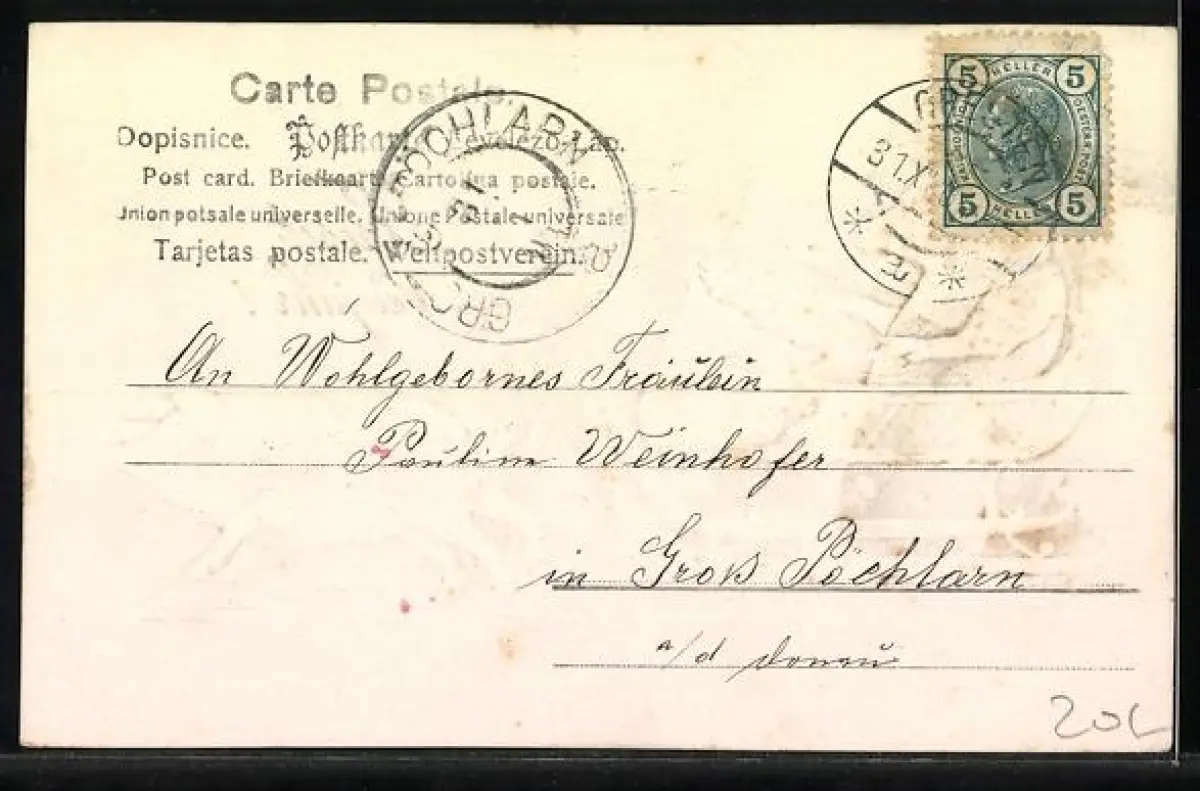 Carte Postale.
Dopisnice. Postkarte Levelező-Lap.
Post card. Briefkaart. Cartolina postale.
Union potsale universelle. Unione Postale universale
Tarjetas postale. Weltpostverein.
GROSS-PÖCHLARN
5 HELLER 5
5 HELLER 5
31.X
An Wohlgebornes Fräulein
Pauline Weinhofer
in Groß Pöchlarn
a/d Donau